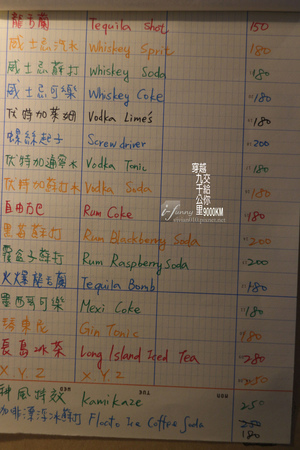 龍舌蘭 Tequila Shot 150
威士忌汽水 Whiskey Sprit 180
威士忌蘇打 Whiskey Soda 180
威士忌可樂 Whiskey Coke 180
伏特加萊姆 Vodka Lime's 180
螺絲起子 Screwdriver 200
伏特加通寧水 Vodka Tonic 180
伏特加蘇打水 Vodka Soda 180
自由古巴 Rum Coke 180
黑莓蘇打 Rum Blackberry Soda 200
覆盆子蘇打 Rum Raspberry Soda 200
火爆龍舌蘭 Tequila Bomb 180
墨西哥可樂 Mexi Coke 180
Gin Tonic 180
長島冰茶 Long Island Iced Tea 280
X Y Z X Y Z 250
神風特效 Kamikaze 250
咖啡漂浮冰蘇打 Floato Ice Coffee Soda 180
穿越九千公里交給你
9000KM